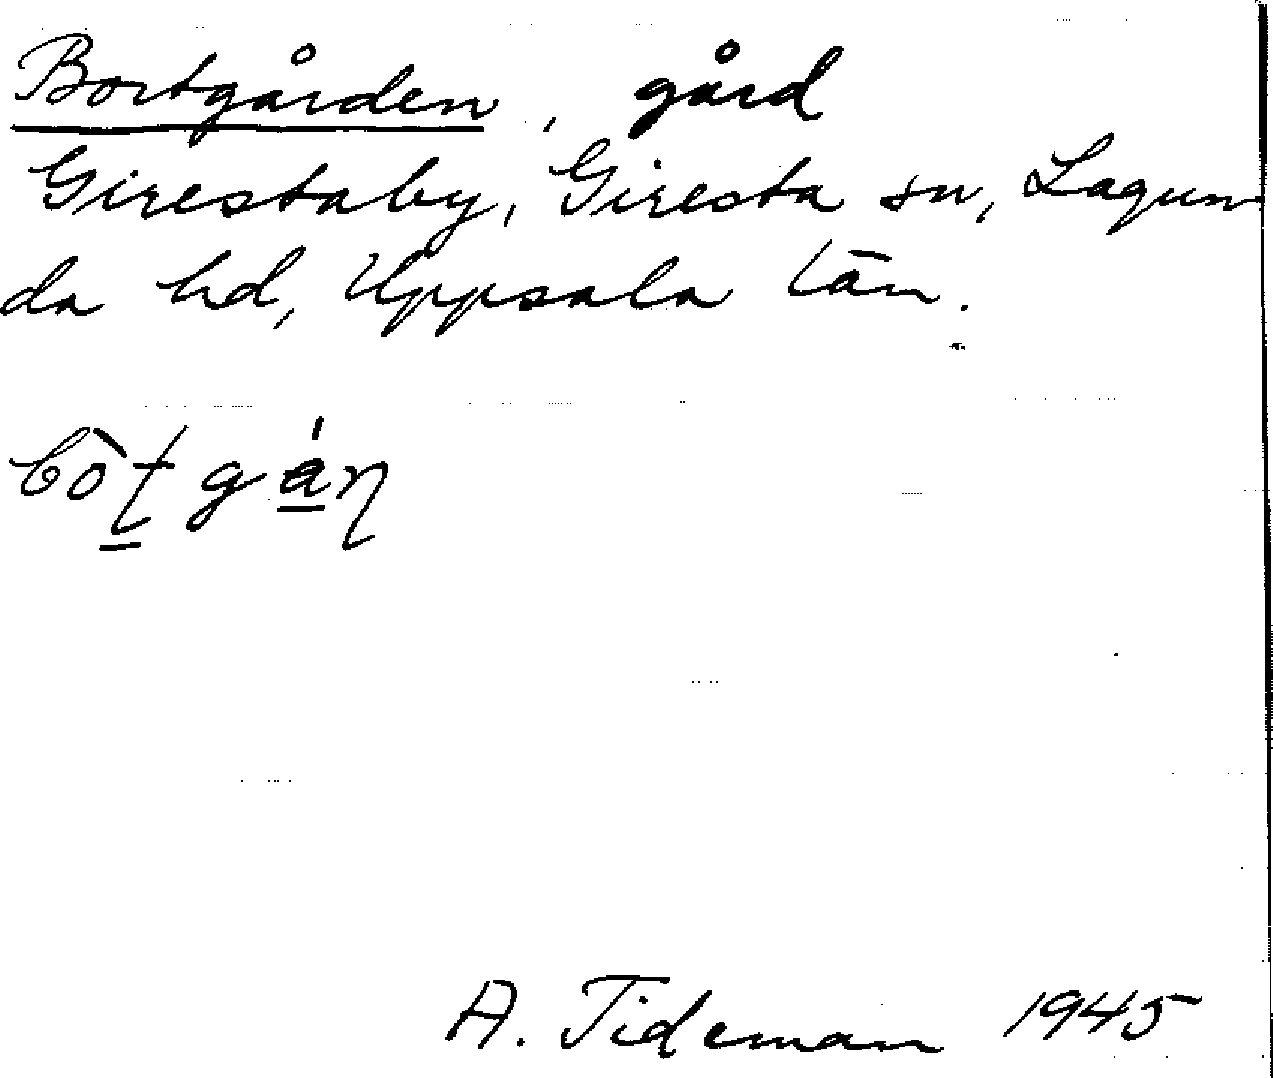 Bortgården, gård
Girestaby, Giresta sn, Lagun
da hd, Uppsala län.
bòʈgá̱ɳ
A. Tideman 1945